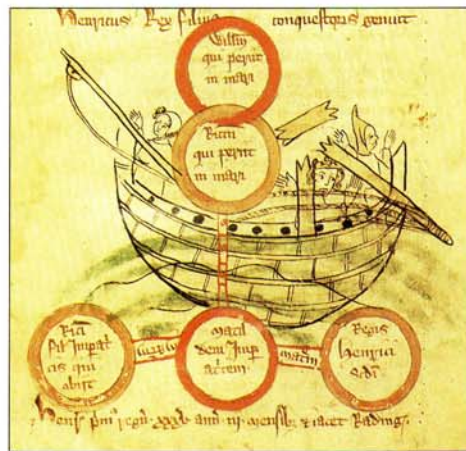 Henricus Rex filius conquestoris genuit
Willm
qui periit
in mari
Ricm
qui periit
in mari
Ric
fil Imperat
cis qui
obiit
Matil
dem Imp
atcem
Regis
Henrici
scdi
Hens pm regn xxxv ann iii mensib et iacet Rading